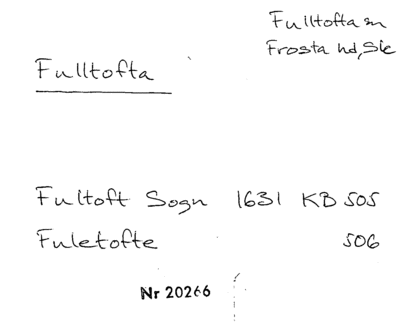 Fulltofta sn
Frosta hd, Sk
Fulltofta
Fultoft Sogn 1631 KB 505
Fuletofte 506
Nr 20266